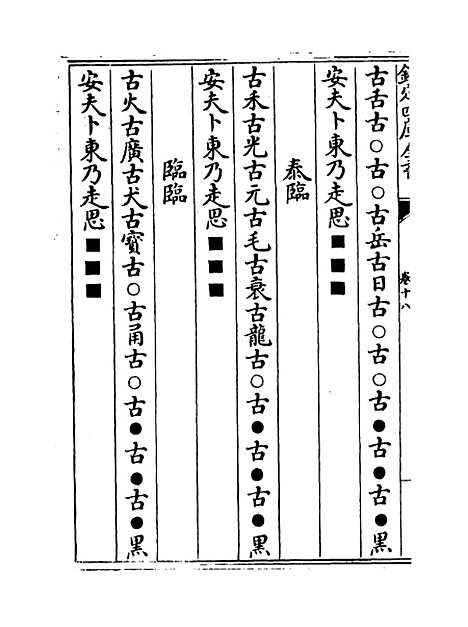 欽定四庫全書
卷十八
古舌古○古○古岳古日古○古○古●古●古●黑
安夫卜東乃走思■■■
泰臨
古禾古光古元古毛古衰古龍古○古●古●古●黑
安夫卜東乃走思■■■
臨臨
古火古廣古犬古寳古○古甬古○古●古●古●黑
安夫卜東乃走思■■■